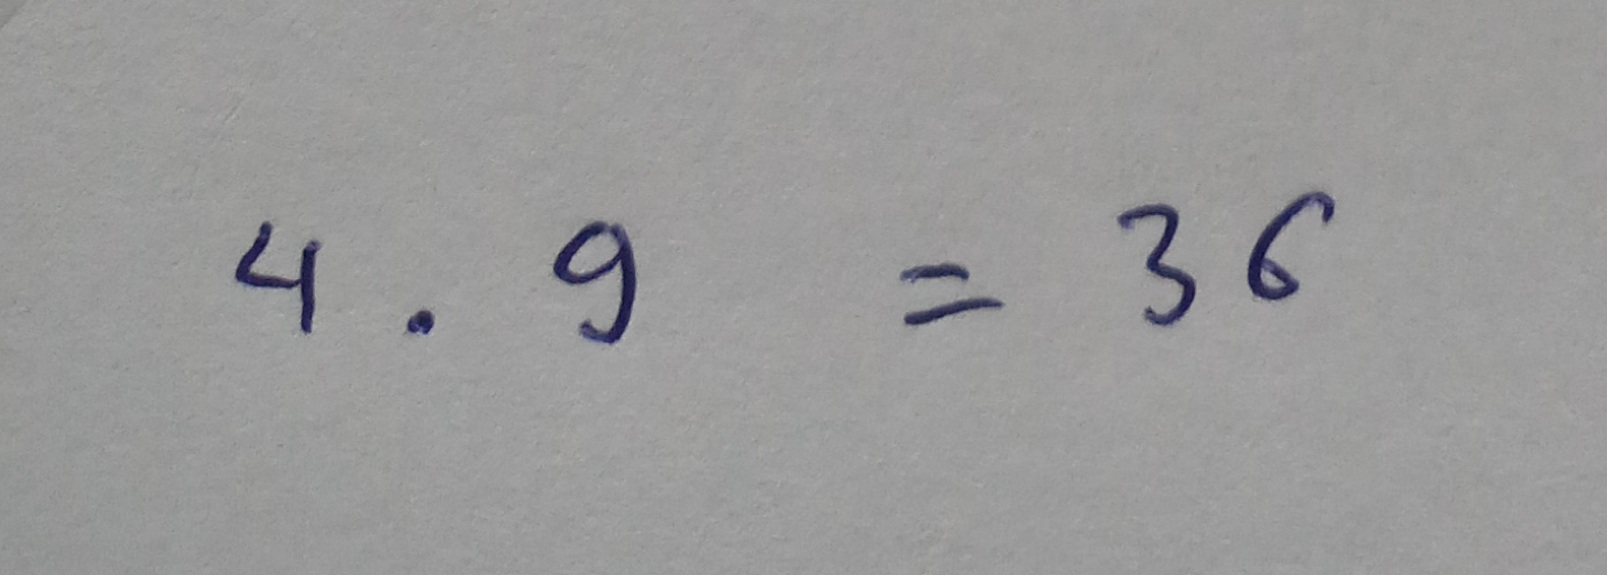 4 . 9 = 36